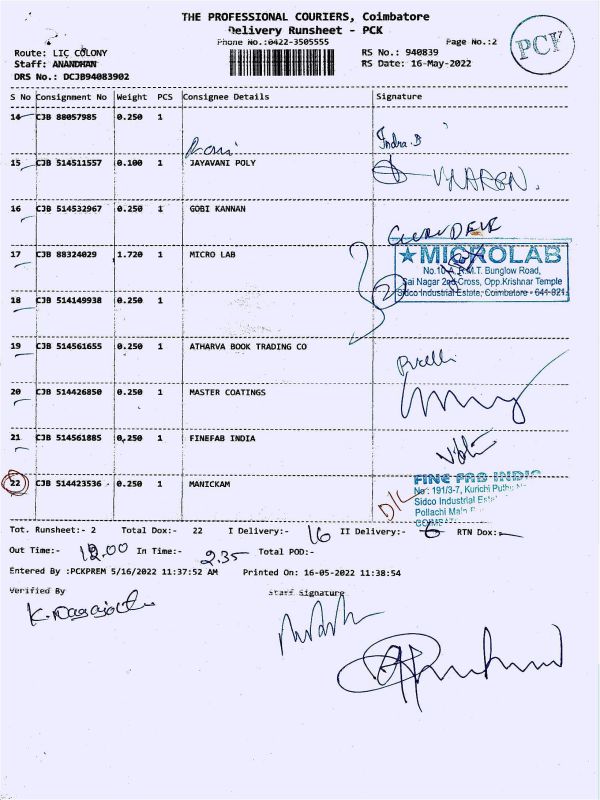 THE PROFESSIONAL COURIERS, Coimbatore
Delivery Runsheet - PCK
Phone No.:0422-3505555
Page No.:2
PCK
Route: LIC COLONY
RS No.: 940839
Staff: ANANDHAN
RS Date: 16-May-2022
DRS No.: DCJB94083902
S No Consignment No Weight PCS Consignee Details Signature
14 CJB 88057985 0.250 1
Indra.B
15 CJB 514511557 0.100 1 JAYAVANI POLY
16 CJB 514532967 0.250 1 GOBI KANNAN
17 CJB 88324029 1.720 1 MICRO LAB
★ MICROLAB
No.10-A, R.M.T. Bunglow Road,
Sai Nagar 2nd Cross, Opp.Krishnar Temple
Sidco Industrial Estate, Coimbatore - 641 021.
2
18 CJB 514149938 0.250 1
19 CJB 514561655 0.250 1 ATHARVA BOOK TRADING CO
20 CJB 514426850 0.250 1 MASTER COATINGS
21 CJB 514561885 0.250 1 FINEFAB INDIA
22 CJB 514423536 0.250 1 MANICKAM
D/L
No: 191/3-7, Kurichi
Sidco Industrial
Pollachi
Tot. Runsheet:- 2 Total Dox:- 22 I Delivery:- 16 II Delivery:- 6 RTN Dox:-
Out Time:- 12.00 In Time:- 2.35 Total POD:-
Entered By :PCKPREM 5/16/2022 11:37:52 AM Printed On: 16-05-2022 11:38:54
Verified By Staff Signature